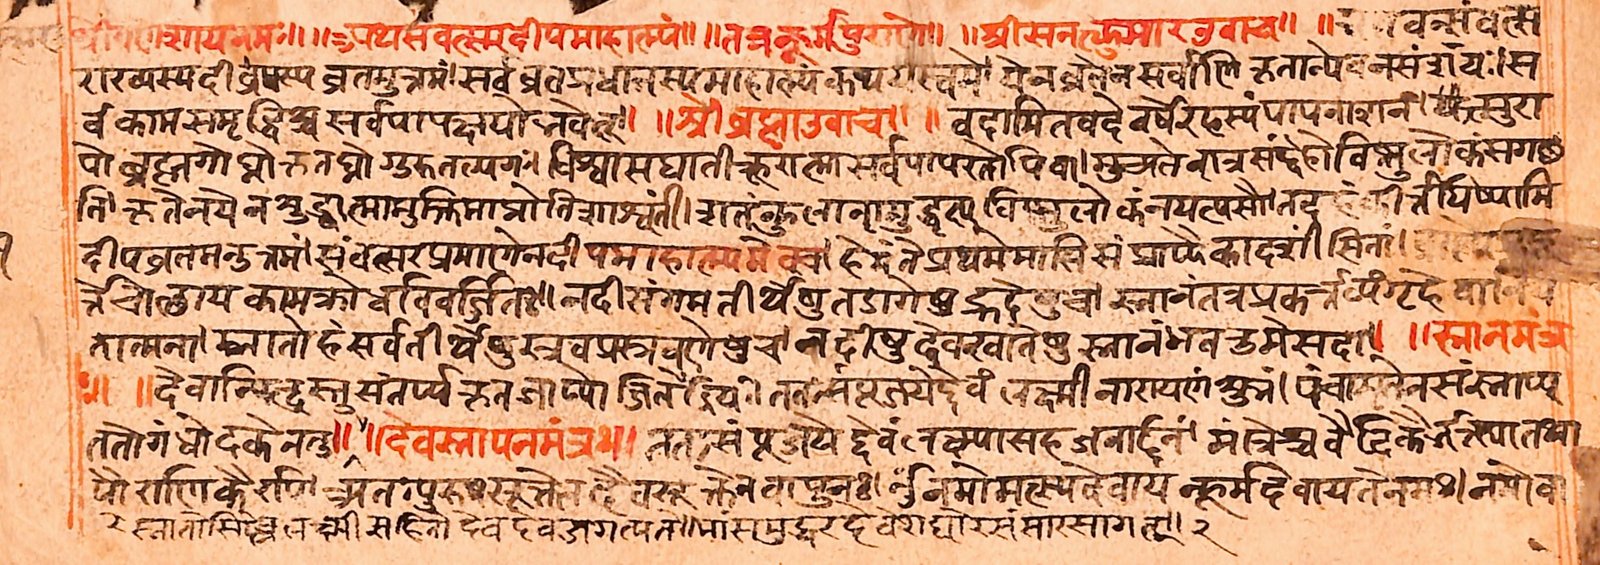 श्रीगणेशायनमः॥ ॥अथसंवत्सरदीपमाहात्म्यं॥ ॥तत्रकूर्मपुराणे॥ ॥श्रीसनत्कुमारउवाच॥ ॥भगवन्संवत्स
राख्यस्यदीपस्य व्रतमुत्तमं।सर्वव्रतप्रधानस्यमाहात्म्यं कथयस्वमे।येनव्रतेनसर्वाणिकृतान्येवनसंशयः।स
र्वकामसमृद्धिश्चसर्वपापक्षयोभवेत्॥ ॥श्रीब्रह्माउवाच॥ ॥ वदामितवदेवर्षेरहस्यंपापनाशनं। सुरा
पोब्रह्महागोघ्नोकृतघ्नोगुरुतल्पगः।विश्वासघातीक्रूरात्मासर्वपापरतोपिवा।मुच्यतेनात्रसंदेहोविष्णुलोकंसगछ
ति।कृतेनयेनशुद्धात्मामुक्तिमाप्नोतिशाश्वतीं।शतंकुलानामुद्धृत्य विष्णुलोकंनयत्यसौ।तदहंकीर्तयिष्यामि
दीपव्रतमनुत्तमं।संवत्सरप्रमाणेनदीपमाहात्म्यमेवच।हेमंतेप्रथमेमासिसंप्राप्यैकादशीं सितां।
चोत्थायकामक्रोधविवर्जितः।नदीसंगमतीर्थेषुतडागेषुह्रदेषुच।स्नानंतत्रप्रकर्त्तव्यंगृहेवानिय
तात्मना। स्नातोहं सर्वतीर्थेषुस्रवप्रस्रवणेषुच। नदीषुदेवखातेषु स्नानंभवतुमेसदा॥ ॥स्नानमंत्र
ः॥ ॥देवान्पितॄंस्तुसंतर्प्यकृतजाप्योजितेंद्रियः।ततःसंपूजयेद्देवं लक्ष्मीनारायणंशुभं।पंचामृतेनसंस्नाप्य
ततोगंधोदकेनतु॥ ॥देवस्नापनमंत्रः। ततःसंपूजयेद्देवंलक्ष्म्यासहजनार्दनं। मंत्रैश्चवैदिकैर्भक्त्यातथा
पौराणिकैरपि। अतःपुरुषसूक्तेन वापुनः।ॐनमोमत्स्यदेवायकूर्मदेवायतेनमः। नमोवा
२ स्नातोसि लक्ष्मीसहितोदेवदेवजगत्पते॥मांसमुद्धरदेवेशघोरसंसारसागरात्॥२